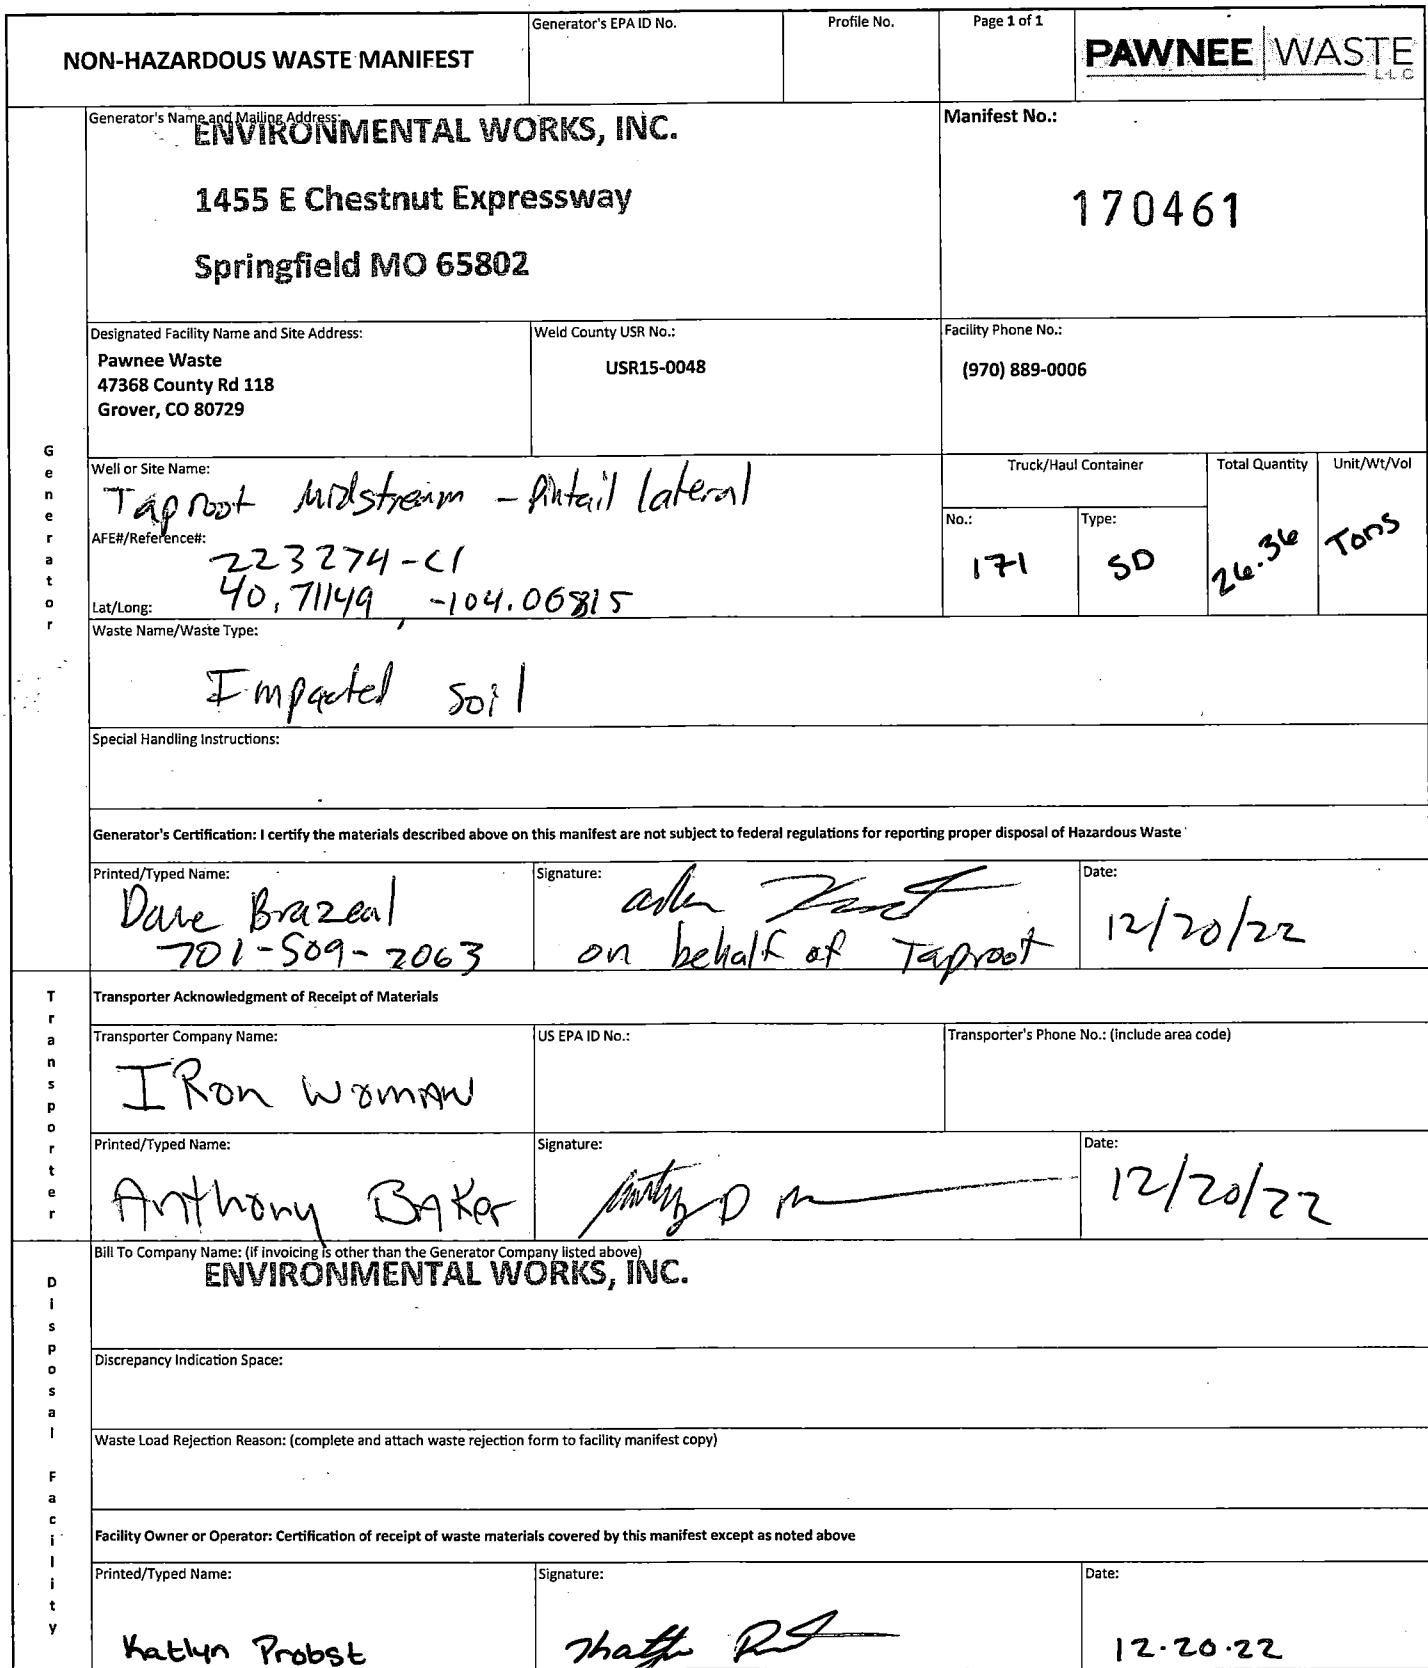 NON-HAZARDOUS WASTE MANIFEST
Generator's EPA ID No.
Profile No.
Page 1 of 1
PAWNEE WASTE
LLC
Generator's Name and Mailing Address:
ENVIRONMENTAL WORKS, INC.
1455 E Chestnut Expressway
Springfield MO 65802
Manifest No.:
170461
Designated Facility Name and Site Address:
Pawnee Waste
47368 County Rd 118
Grover, CO 80729
Weld County USR No.:
USR15-0048
Facility Phone No.:
(970) 889-0006
Generator
Well or Site Name:
Taproot Midstream - Pintail lateral
AFE#/Reference#:
223274-C1
Lat/Long:
40.71149 -104.06815
Truck/Haul Container
No.:
171
Type:
SD
Total Quantity
26.36
Unit/Wt/Vol
Tons
Waste Name/Waste Type:
Impacted soil
Special Handling Instructions:
Generator's Certification: I certify the materials described above on this manifest are not subject to federal regulations for reporting proper disposal of Hazardous Waste
Printed/Typed Name:
Dave Brazeal
701-509-2063
Signature:
on behalf of Taproot
Date:
12/20/22
Transporter
Transporter Acknowledgment of Receipt of Materials
Transporter Company Name:
IRon WomAN
US EPA ID No.:
Transporter's Phone No.: (include area code)
Printed/Typed Name:
Anthony BAKer
Signature:
Date:
12/20/22
Disposal Facility
Bill To Company Name: (if invoicing is other than the Generator Company listed above)
ENVIRONMENTAL WORKS, INC.
Discrepancy Indication Space:
Waste Load Rejection Reason: (complete and attach waste rejection form to facility manifest copy)
Facility Owner or Operator: Certification of receipt of waste materials covered by this manifest except as noted above
Printed/Typed Name:
Katlyn Probst
Signature:
Date:
12.20.22